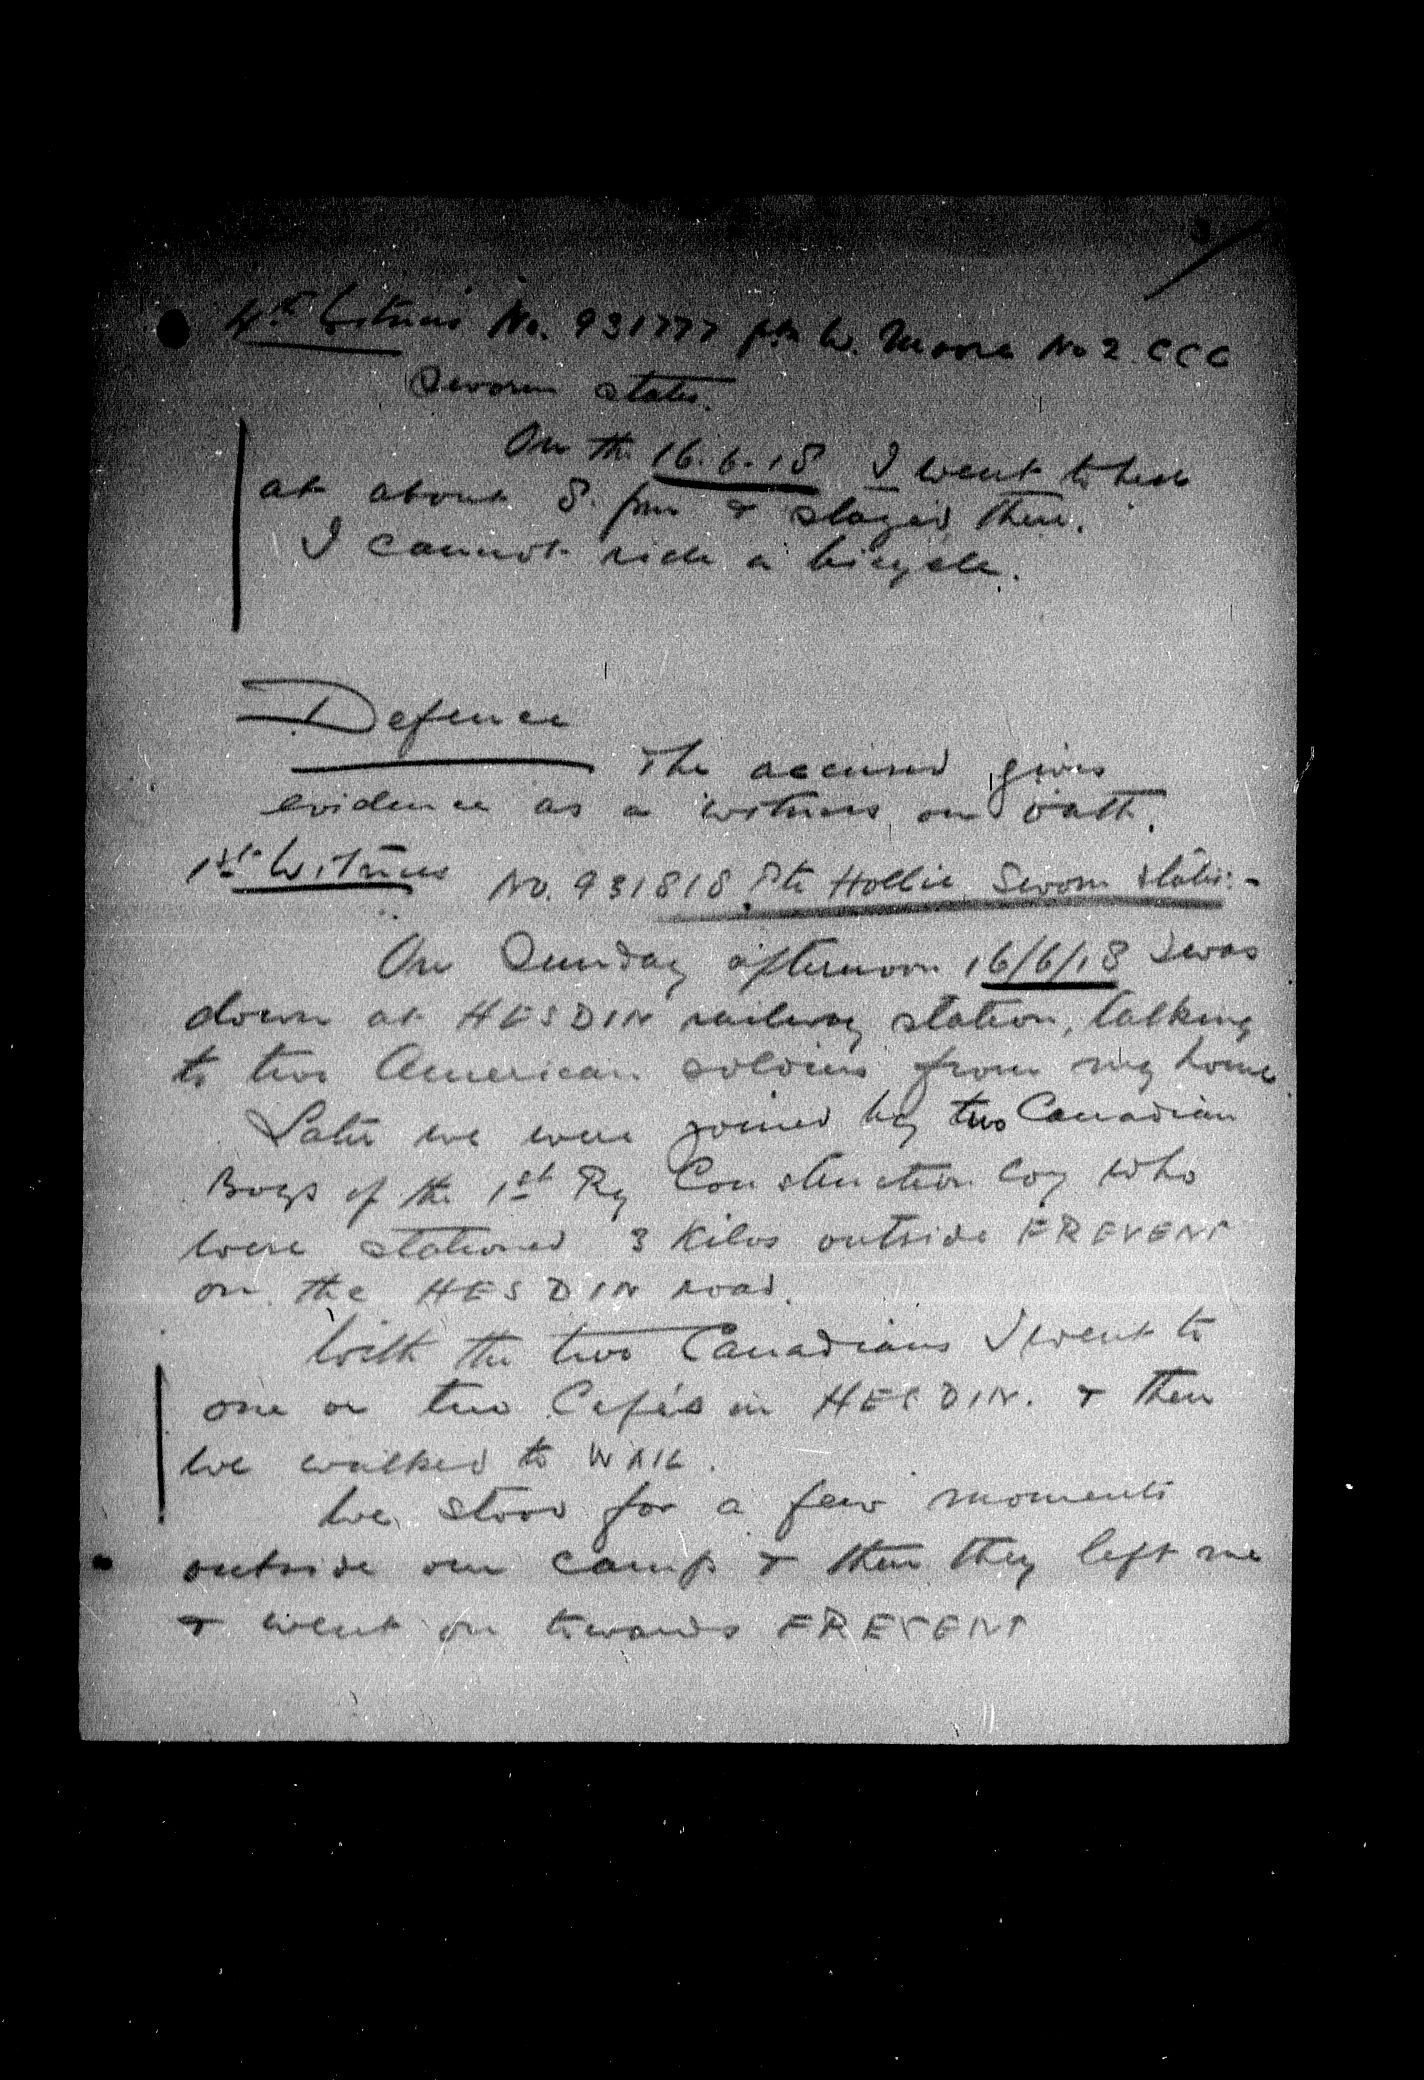 3/
4th Witness No. 931777 Pte W. Moore No 2 CCC
Sworn states.
On the 16.6.18 I went to bed
at about 8. pm & stayed there.
I cannot ride a bicycle.
Defence
The accused gives
evidence as a witness on oath.
1st Witness No. 931818 Pte Hollie Sworn states:-
On Sunday afternoon 16/6/18 I was
down at HESDIN railway station, talking
to two American soldiers from my home
Later we were joined by two Canadian
Boys of the 1st Ry Construction Coy who
were stationed 3 Kilos outside FREVENT
on the HESDIN road.
With the two Canadians I went to
one or two Cafés in HESDIN. & then
we walked to WAIL.
We stood for a few moments
outside our camp & then they left me
& went on towards FREVENT